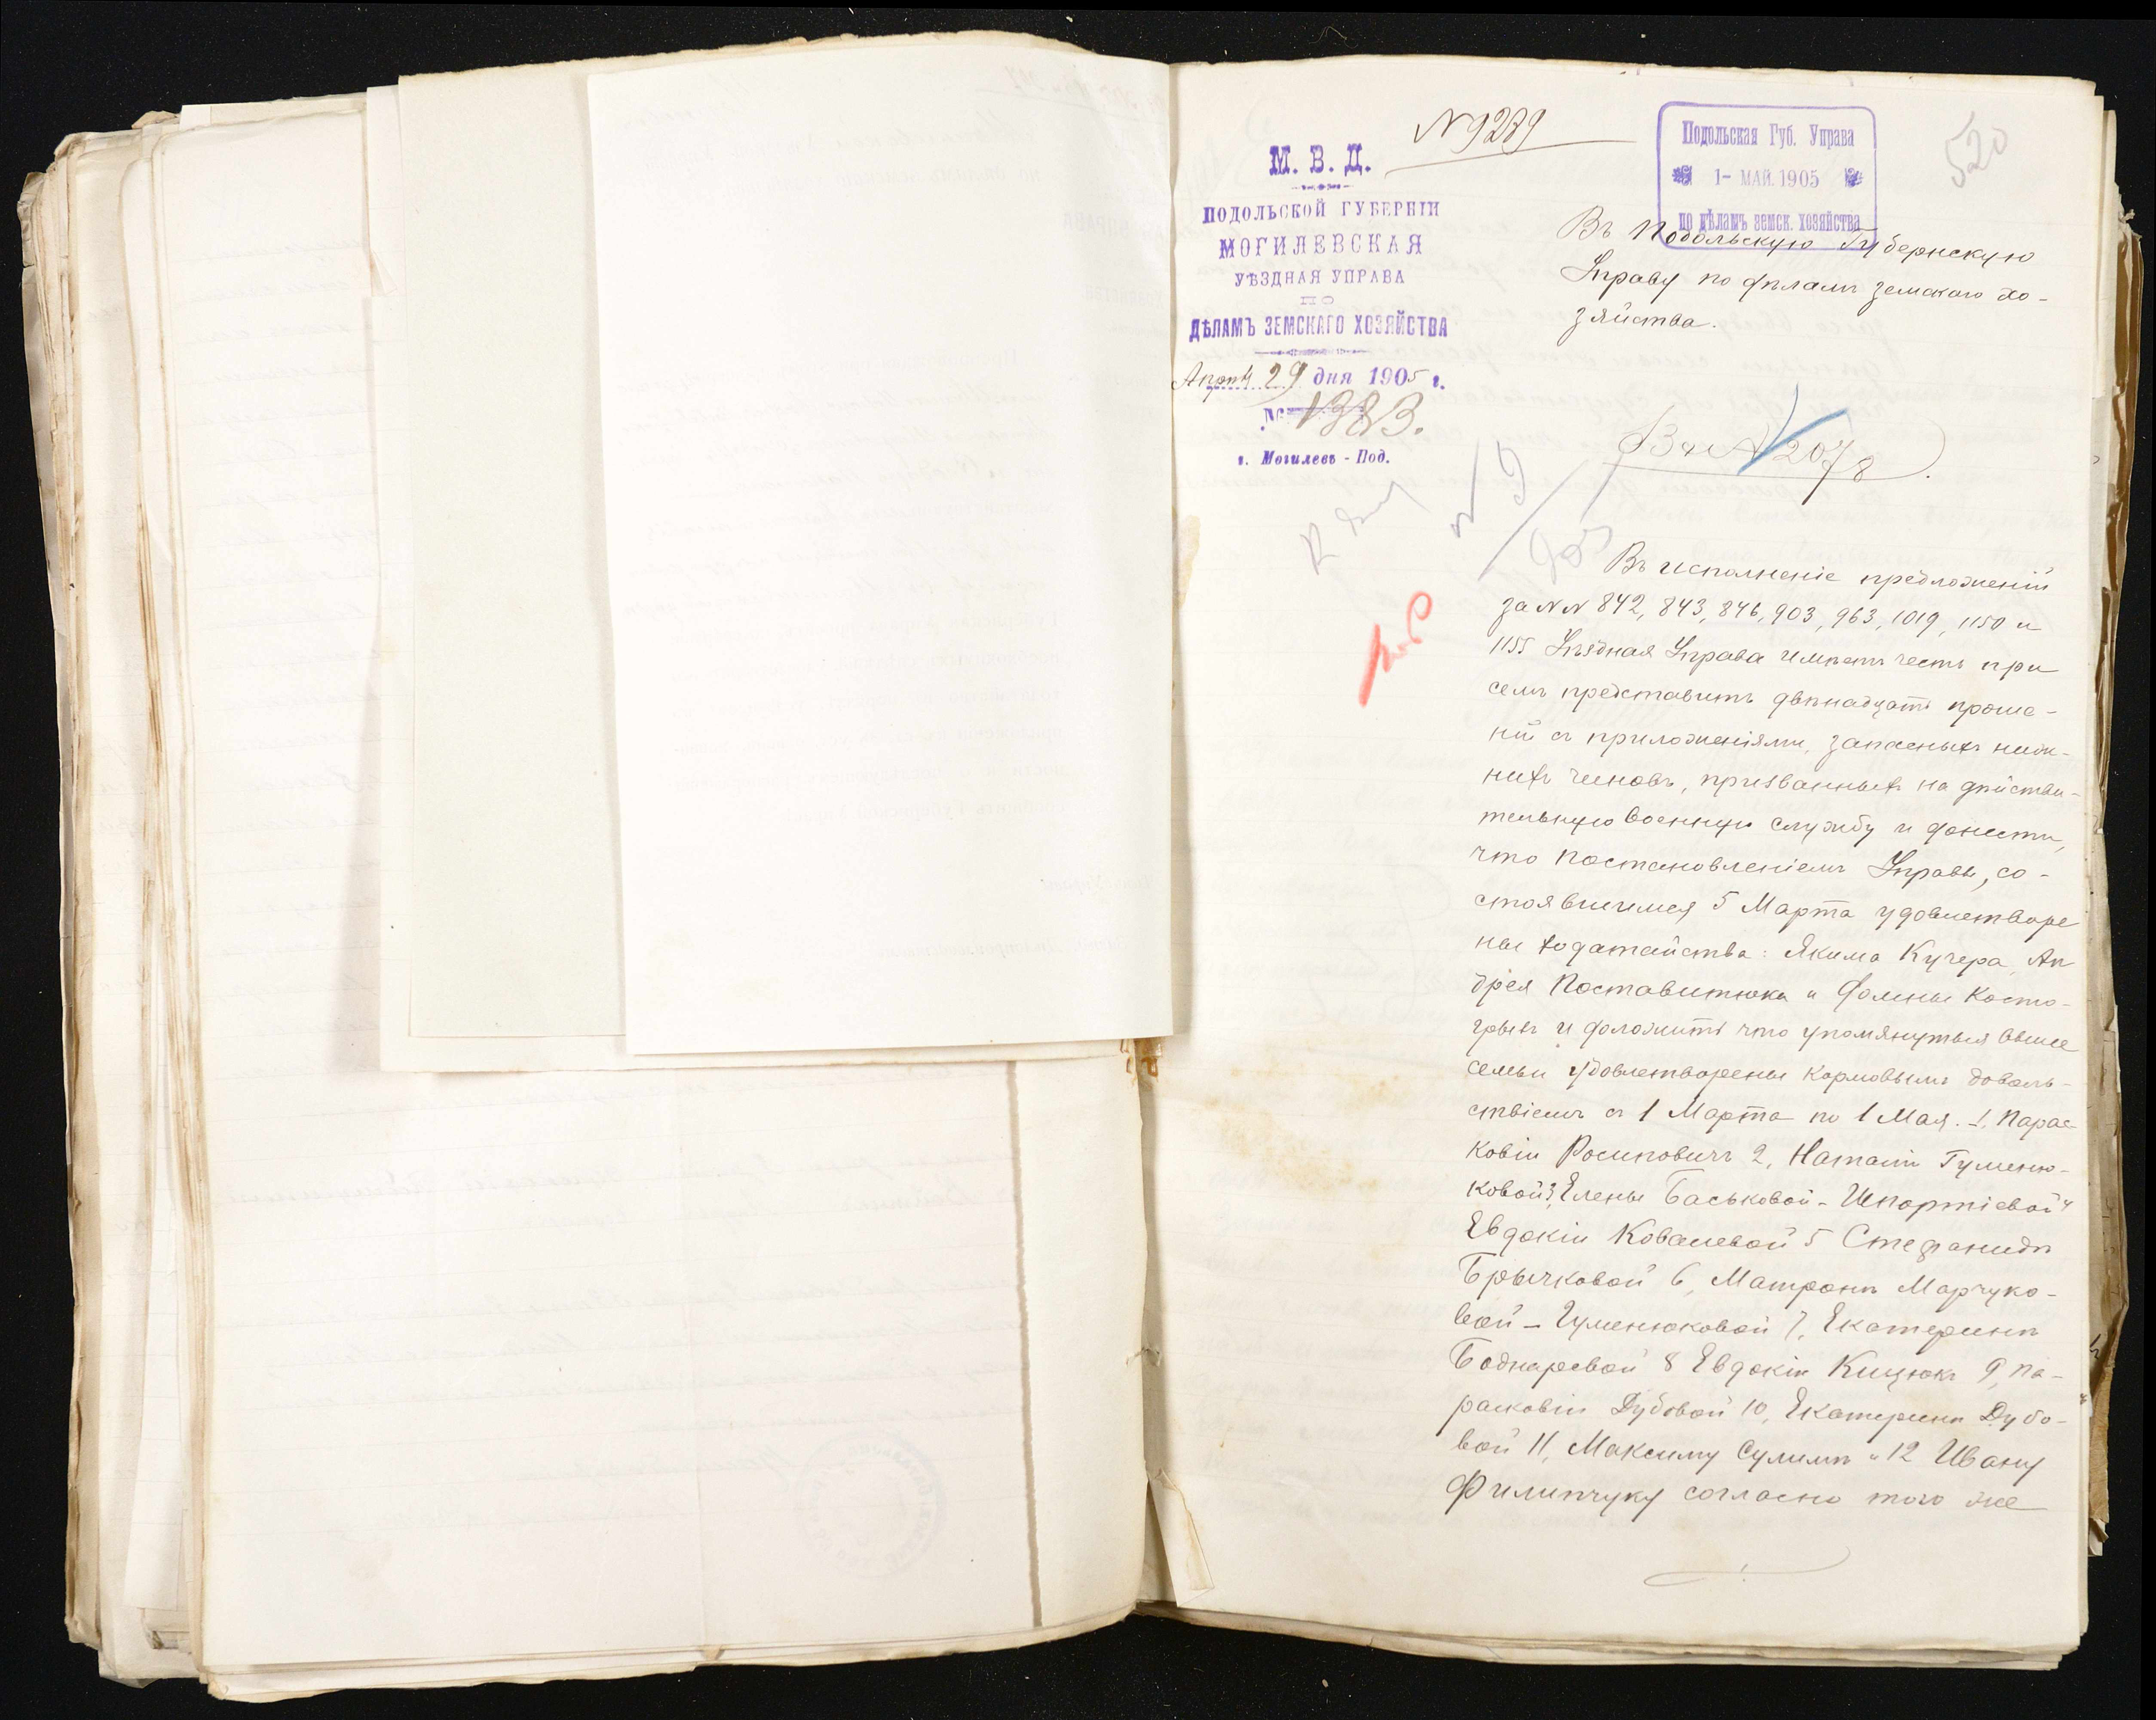 № 9289
М. В. Д.
ПОДОЛЬСКОЙ ГУБЕРНІИ
МОГИЛЕВСКАЯ
УѢЗДНАЯ УПРАВА
ПО
ДѢЛАМЪ ЗЕМСКАГО ХОЗЯЙСТВА
Апрѣл 29 дня 1905 г.
№ 1383.
г. Могилевъ - Под.
Подольская Губ. Управа
1- МАЙ. 1905
по дѣламъ земск. хозяйства
520
Въ Подольскую Губернскую
Управу по дѣламъ земскаго хо-
зяйства.
Вх № 2078
Въ исполненіе предложеній
за №№ 842, 843, 846, 903, 963, 1019, 1150 и
1155 Уѣздная Управа имѣетъ честь при
семъ представить двѣнадцать проше-
ній съ приложеніями, запасныхъ ниж-
нихъ чиновъ, призванныхъ на дѣйстви-
тельную военную службу и донести,
что постановленіемъ Управы, со-
стоявшимся 5 Марта удовлетворе
ны ходатайства: Якима Кучера, Ан
дрея Поставитюка и Фомины Косто-
грызъ и доложить что упомянутыя выше
семьи удовлетворены кормовымъ доволь-
ствіемъ съ 1 Марта по 1 Мая. 1. Парас-
ковіи Росиповичъ 2, Наталіи Гуменю-
ковой 3, Елены Баськовой - Шпортіевой 4
Евдокіи Ковалевой 5 Стефанидѣ
Брычковой 6, Матронѣ Марчуко-
вой - Гуменюковой 7, Екатеринѣ
Боднаревой 8 Евдокіи Кицюкъ 9, Па-
расковіи Дубовой 10, Екатеринѣ Дубо-
вой 11, Максиму Сулимѣ и 12 Ивану
Филипчуку согласно того же